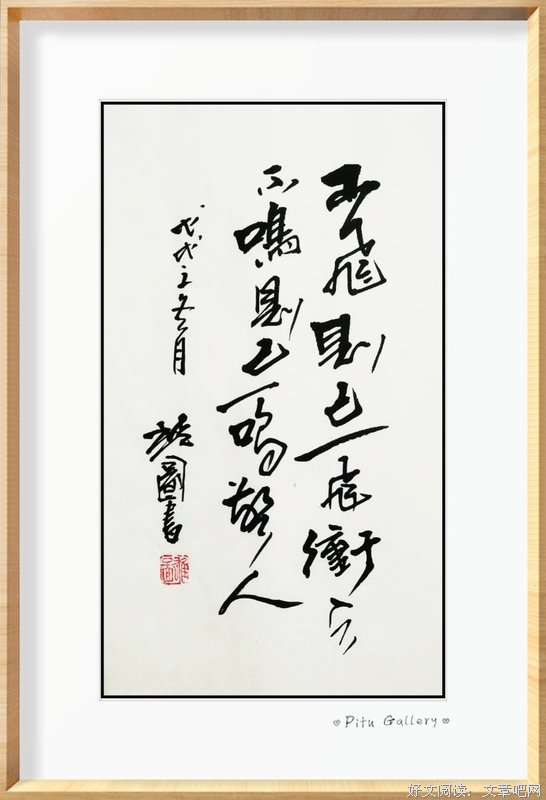 不飛則已一飛衝天
不鳴則已一鳴驚人
戊戌冬月
圖書
Pitu Gallery
好文阅读：文章吧网